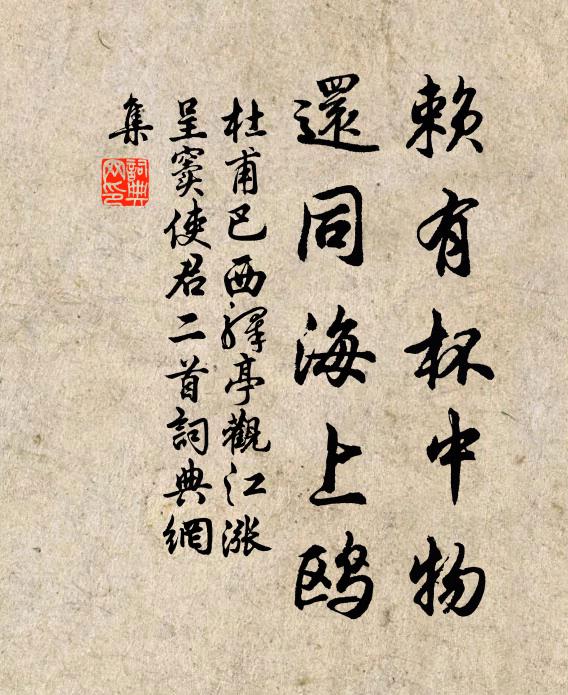 賴有杯中物
還同海上鸥
杜甫巴西驛亭觀江漲
呈窦使君二首詞典網
集
詞典
网印